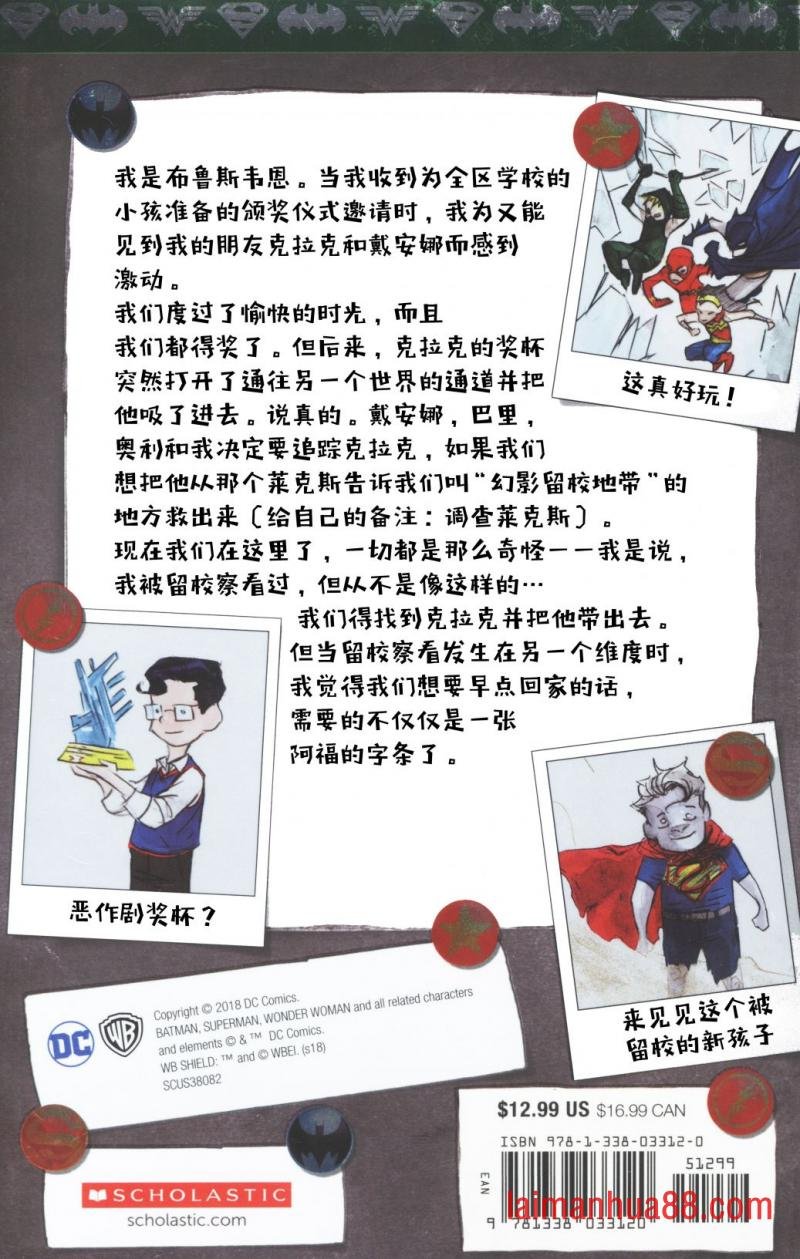 我是布鲁斯韦恩。当我收到为全区学校的
小孩准备的颁奖仪式邀请时，我为又能
见到我的朋友克拉克和戴安娜而感到
激动。
我们度过了愉快的时光，而且
我们都得奖了。但后来，克拉克的奖杯
突然打开了通往另一个世界的通道并把
他吸了进去。说真的。戴安娜，巴里，
奥利和我决定要追踪克拉克，如果我们
想把他从那个莱克斯告诉我们叫“幻影留校地带”的
地方救出来〔给自己的备注：调查莱克斯〕。
现在我们在这里了，一切都是那么奇怪——我是说，
我被留校察看过，但从不是像这样的…
我们得找到克拉克并把他带出去。
但当留校察看发生在另一个维度时，
我觉得我们想要早点回家的话，
需要的不仅仅是一张
阿福的字条了。
这真好玩！
恶作剧奖杯？
来见见这个被
留校的新孩子
DC
WB
Copyright © 2018 DC Comics.
BATMAN, SUPERMAN, WONDER WOMAN and all related characters
and elements © & ™ DC Comics.
WB SHIELD: ™ and © WBEI. (s18)
SCUS38082
SCHOLASTIC
scholastic.com
$12.99 US $16.99 CAN
ISBN 978-1-338-03312-0
51299
EAN
9 781338 033120
laimanhua88.com